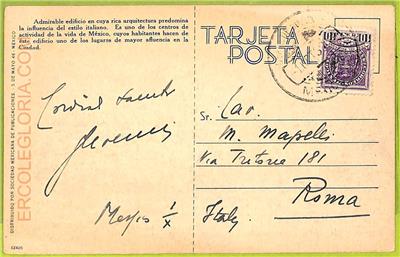 Admirable edificio en cuya rica arquitectura predomina
la influencia del estilo italiano. Es uno de los centros de
actividad de la vida de México, cuyos habitantes hacen de
éste edificio uno de los lugares de mayor afluencia en la
Ciudad.
TARJETA
POSTAL
Cordial
Mexico 1/X
Sr. Cav.
M. Mapelli
Via Tritone 181
Roma
Italy
DISTRIBUIDO POR SOCIEDAD MEXICANA DE PUBLICACIONES
MEXICO
ERCOLEGLORIA.CO